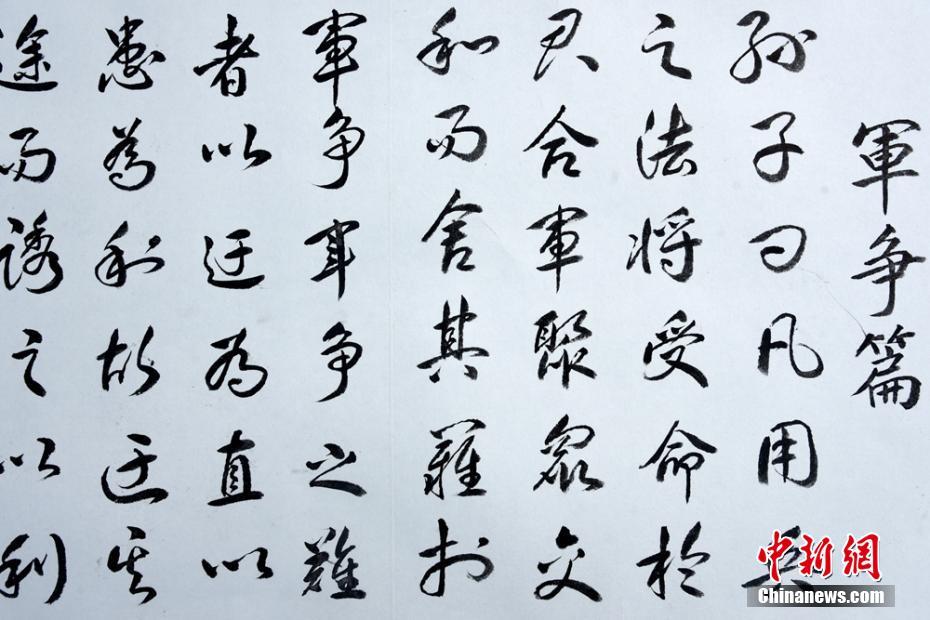 軍争篇
孫子曰凡用兵
之法将受命於
君合軍聚眾交
和而舍其難於
軍争軍争之難
者以迂為直以
患為利故迂其
途而誘之以利
中新網
Chinanews.com